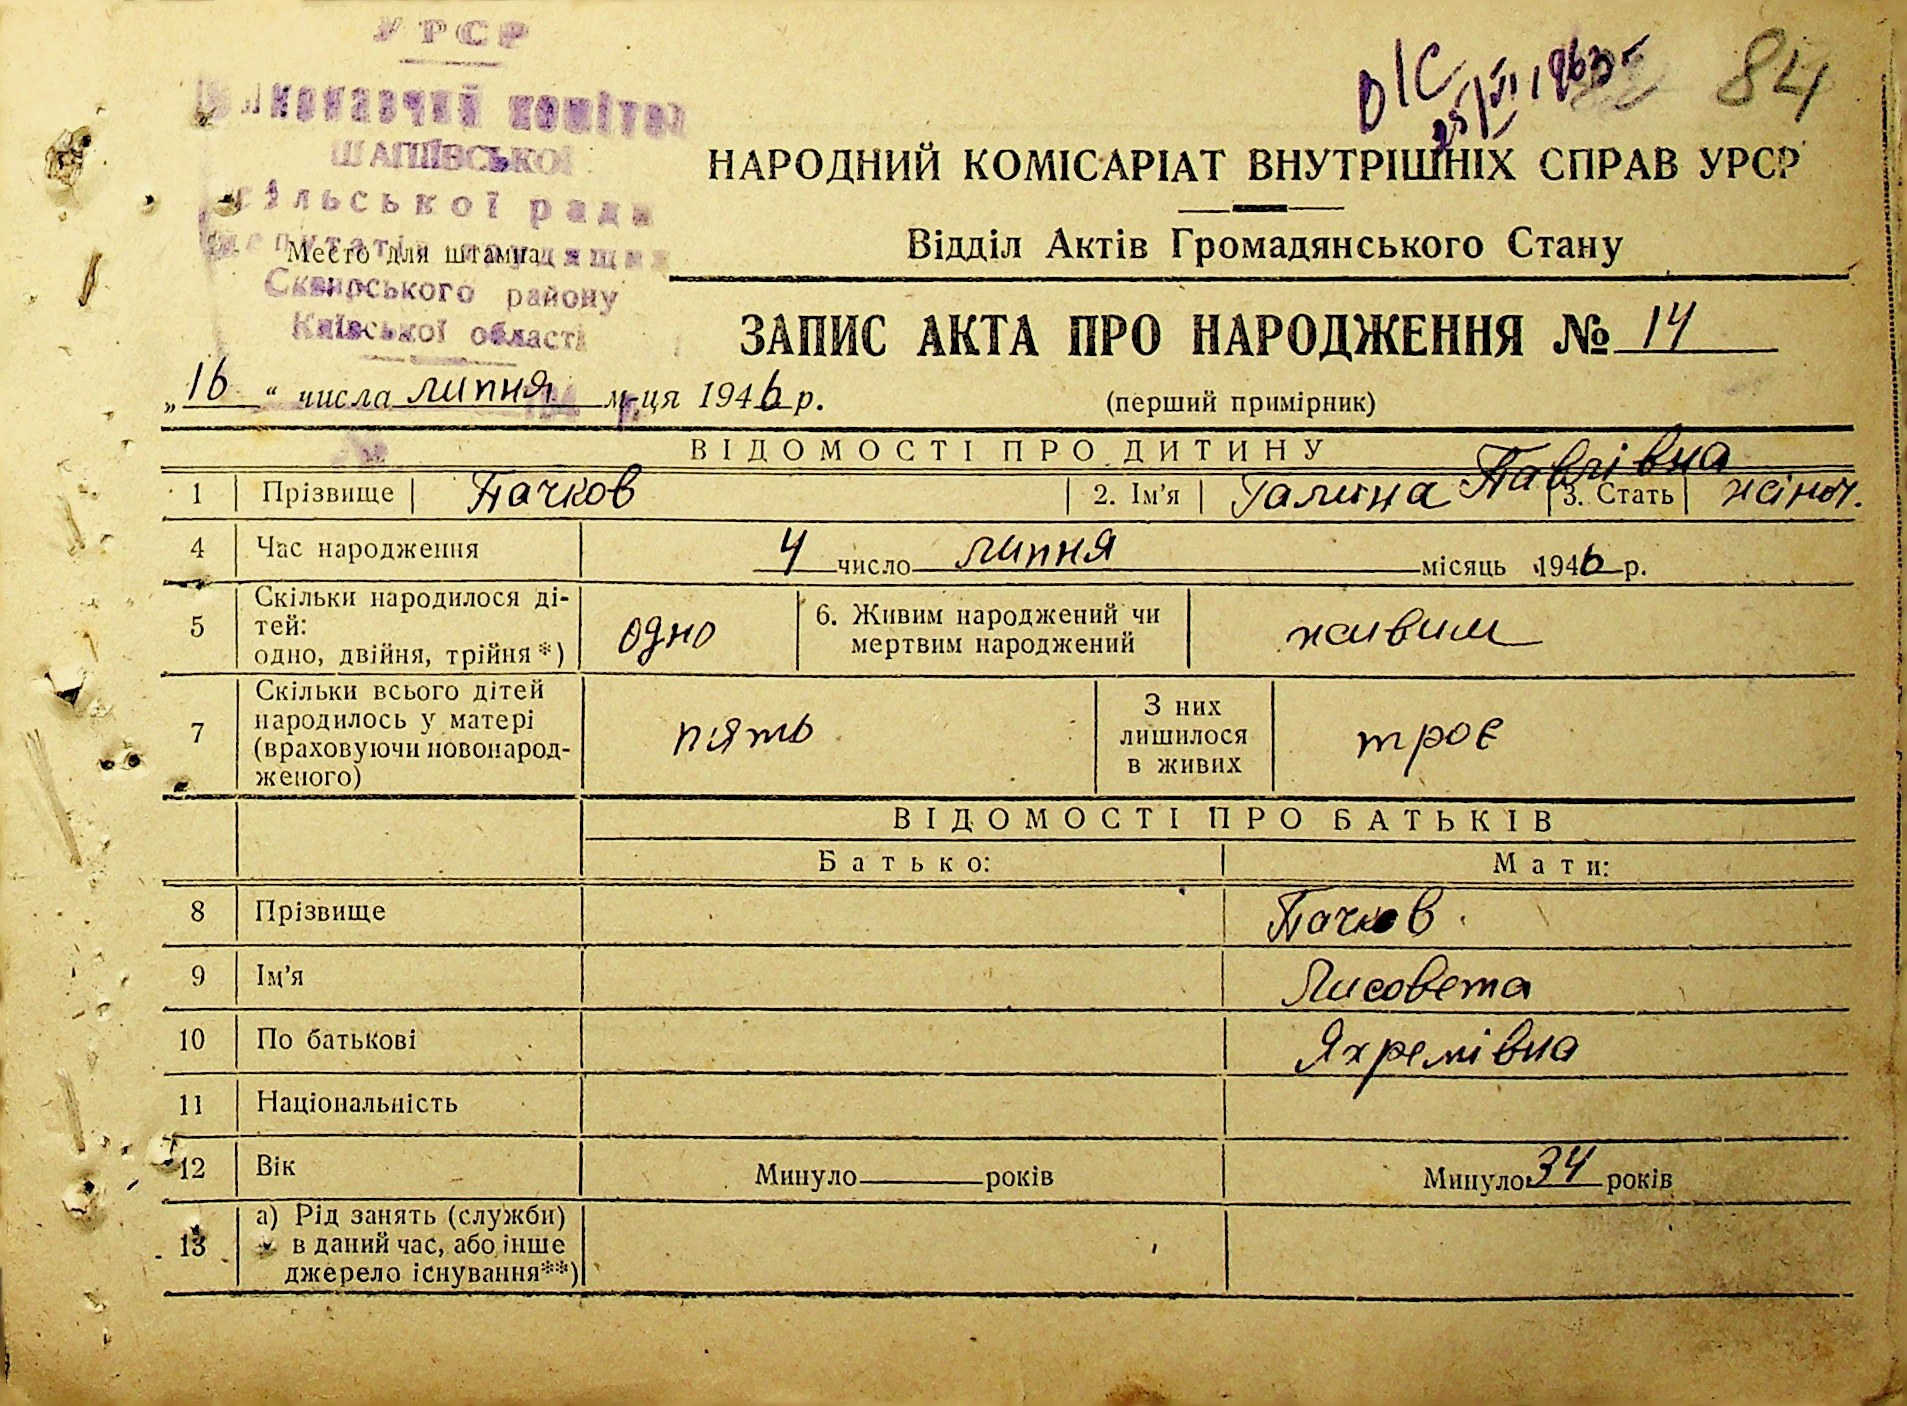 УРСР
Виконавчий комітет
ШАПІЇВСЬКОЇ
сільської ради
депутатів трудящих
Место для штампа
Сквирського району
Київської області
О/С 84
НАРОДНИЙ КОМІСАРІАТ ВНУТРІШНІХ СПРАВ УРСР
Відділ Актів Громадянського Стану
ЗАПИС АКТА ПРО НАРОДЖЕННЯ № 14
„16“ числа липня м-ця 1946 р.
(перший примірник)
ВІДОМОСТІ ПРО ДИТИНУ
1 Прізвище Пачков 2. Ім'я Галина Павлівна 3. Стать жіноч.
4 Час народження 4 число липня місяць 1946 р.
5 Скільки народилося ді-
тей:
одно, двійня, трійня*)
одно
6. Живим народжений чи
мертвим народжений
живим
7 Скільки всього дітей
народилось у матері
(враховуючи новонарод-
женого)
пять
З них
лишилося
в живих
троє
ВІДОМОСТІ ПРО БАТЬКІВ
Батько: Мати:
8 Прізвище Пачков
9 Ім'я Лисовета
10 По батькові Яхремівна
11 Національність
12 Вік Минуло років Минуло 34 років
13 а) Рід занять (служби)
в даний час, або інше
джерело існування**)